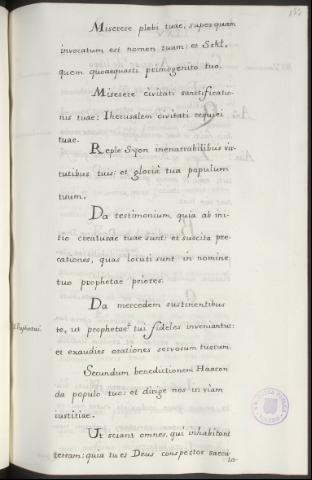 Miserere plebi tuae, super quam
invocatum est nomen tuum: et Srhl.
quem quoaequasti primogenito tuo.
Miserere civitati sanctificatio-
nis tuae: Iherusalem civitati requiei
tuae.
Reple Syon inenarrabilibus vir-
tutibus tuis: et gloria tua populum
tuum.
Da testimonium quia ab ini-
tio creaturae tuae sunt: et suscita pre-
cationes, quas locuti sunt in nomine
tuo prophetae priores.
Da mercedem sustinentibus
te, ut prophetae tui fideles inveniantur:
et exaudies orationes servorum tuorum.
Secundum benedictionem Haaron
da populo tuo: et dirige nos in viam
iustitiae.
Ut sciant omnes, qui inhabitant
terram: quia tu es Deus conspector saecu
lo-